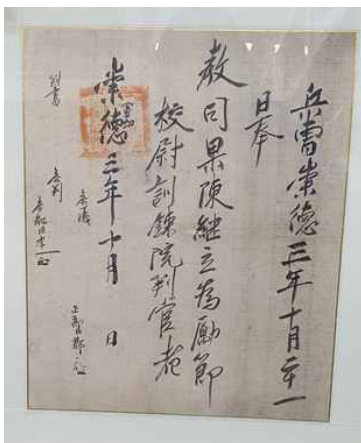 兵曹崇德三年十月二十一
日奉
教司果陳繼立為勵節
校尉訓鍊院判官者
崇德三年十月 日
判書
參判
參議
正郎